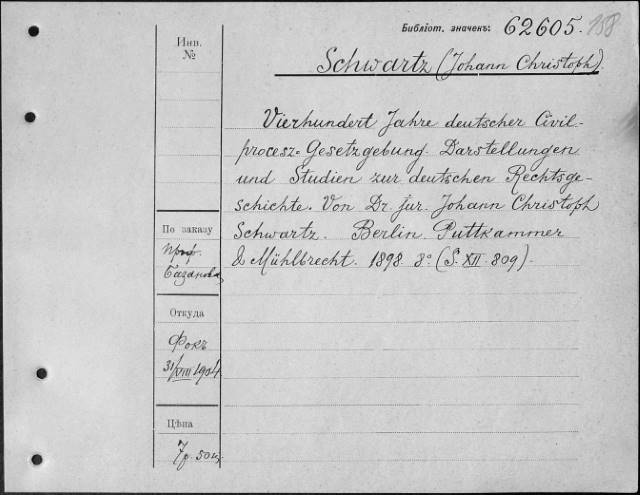 Библіот. значекъ: 62605. 158
Инв.
№
Schwartz (Johann Christoph).
Vierhundert Jahre deutscher Civil-
procesz-Gesetzgebung. Darstellungen
und Studien zur deutschen Rechtsge-
schichte. Von Dr. jur. Johann Christoph
Schwartz. Berlin. Puttkammer
& Mühlbrecht. 1898. 8° (S. XII. 809).
По заказу
проф.
Базанова
Откуда
Фокъ
31/VIII 1904
Цѣна
7р. 50к.